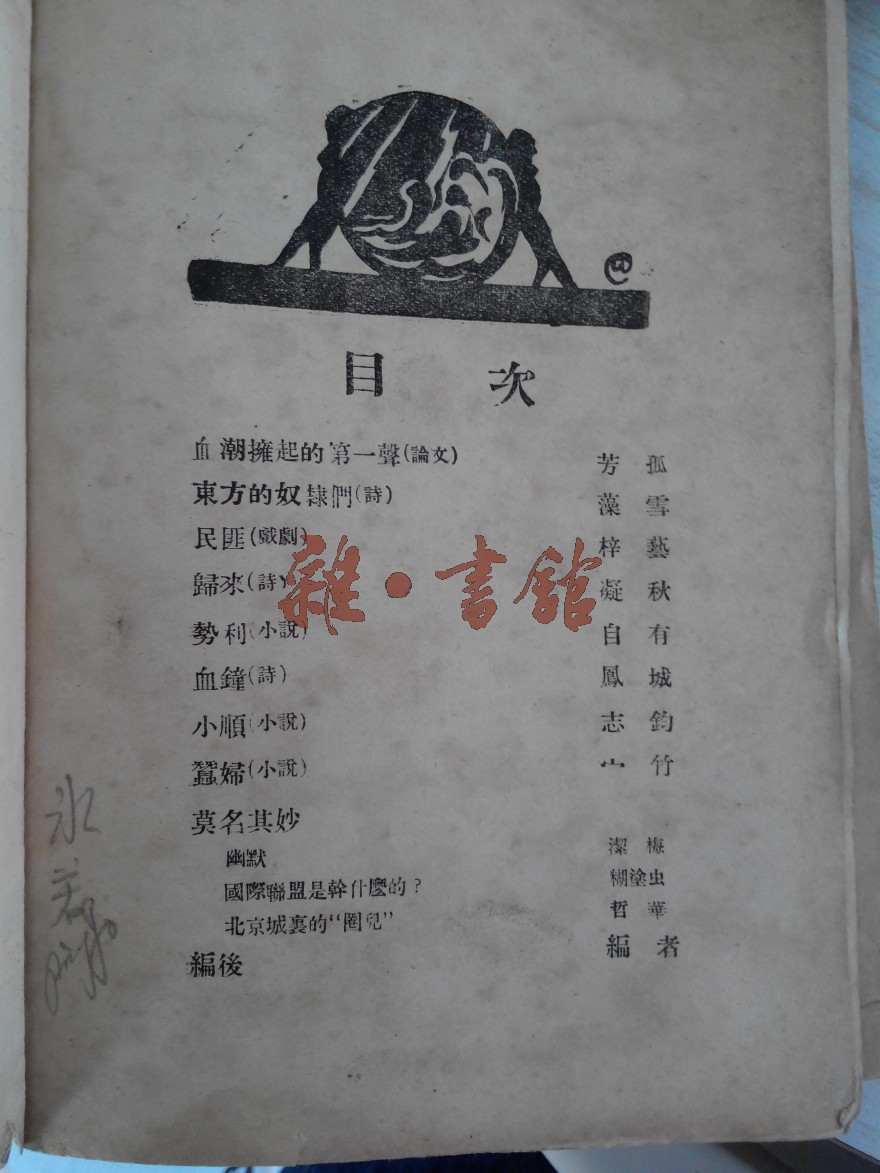 目 次
血潮擁起的第一聲(論文) 芳 孤
東方的奴隸們(詩) 藻 雪
民匪(戲劇) 梓 藝
歸來(詩) 凝 秋
勢利(小說) 自 有
血鐘(詩) 鳳 城
小順(小說) 志 鈞
蠶婦(小說) 竹
莫名其妙
幽默 潔 梅
國際聯盟是幹什麽的? 糊塗虫
北京城裏的“圈兒” 哲 華
編後 編 者
雜·書館
冰